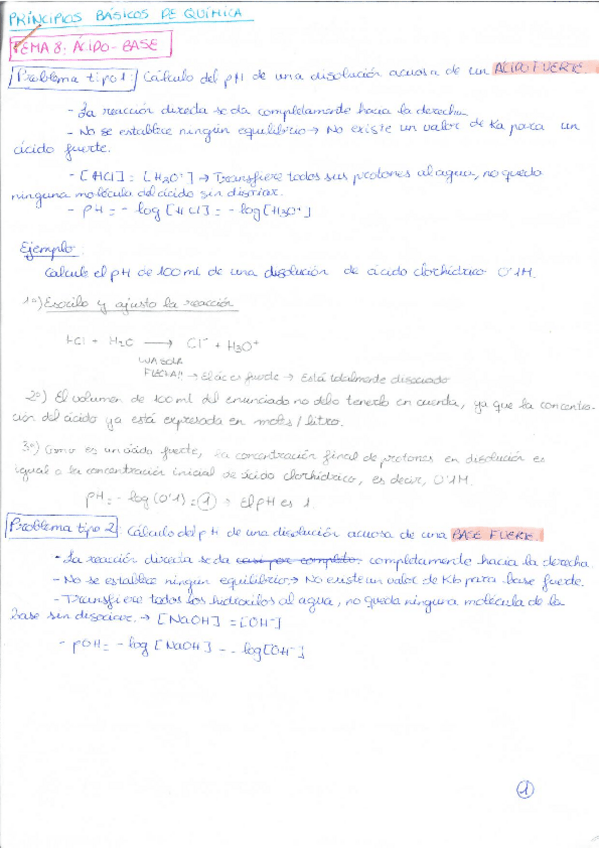 PRINCIPIOS BÁSICOS DE QUÍMICA
TEMA 8: ÁCIDO-BASE
Problema tipo 1: Cálculo del pH de una disolución acuosa de un ÁCIDO FUERTE.
- La reacción directa se da completamente hacia la derecha.
- No se establece ningún equilibrio → No existe un valor de Ka para un
ácido fuerte.
- [HCl] = [H3O+] → Transfiere todos sus protones al agua, no queda
ninguna molécula del ácido sin disociar.
- pH = - log [HCl] = - log [H3O+]
Ejemplo:
Calcule el pH de 100 ml de una disolución de ácido clorhídrico 0'1M.
1º) Escribo y ajusto la reacción
HCl + H2O → Cl- + H3O+
UNA SOLA
FLECHA!! → El ác es fuerte → Está totalmente disociado
2º) El volumen de 100 ml del enunciado no debo tenerlo en cuenta, ya que la concentra-
ción del ácido ya está expresada en moles/litro.
3º) Como es un ácido fuerte, la concentración final de protones en disolución es
igual a la concentración inicial de ácido clorhídrico, es decir, 0'1M.
pH = - log (0'1) = 1 → El pH es 1
Problema tipo 2: Cálculo del pH de una disolución acuosa de una BASE FUERTE.
- La reacción directa se da casi por completo. completamente hacia la derecha.
- No se establece ningun equilibrio → No existe un valor de Kb para base fuerte.
- Transfiere todos los hidroxilos al agua, no queda ninguna molécula de la
base sin disociar. → [NaOH] = [OH-]
- pOH = - log [NaOH] = - log [OH-]
1